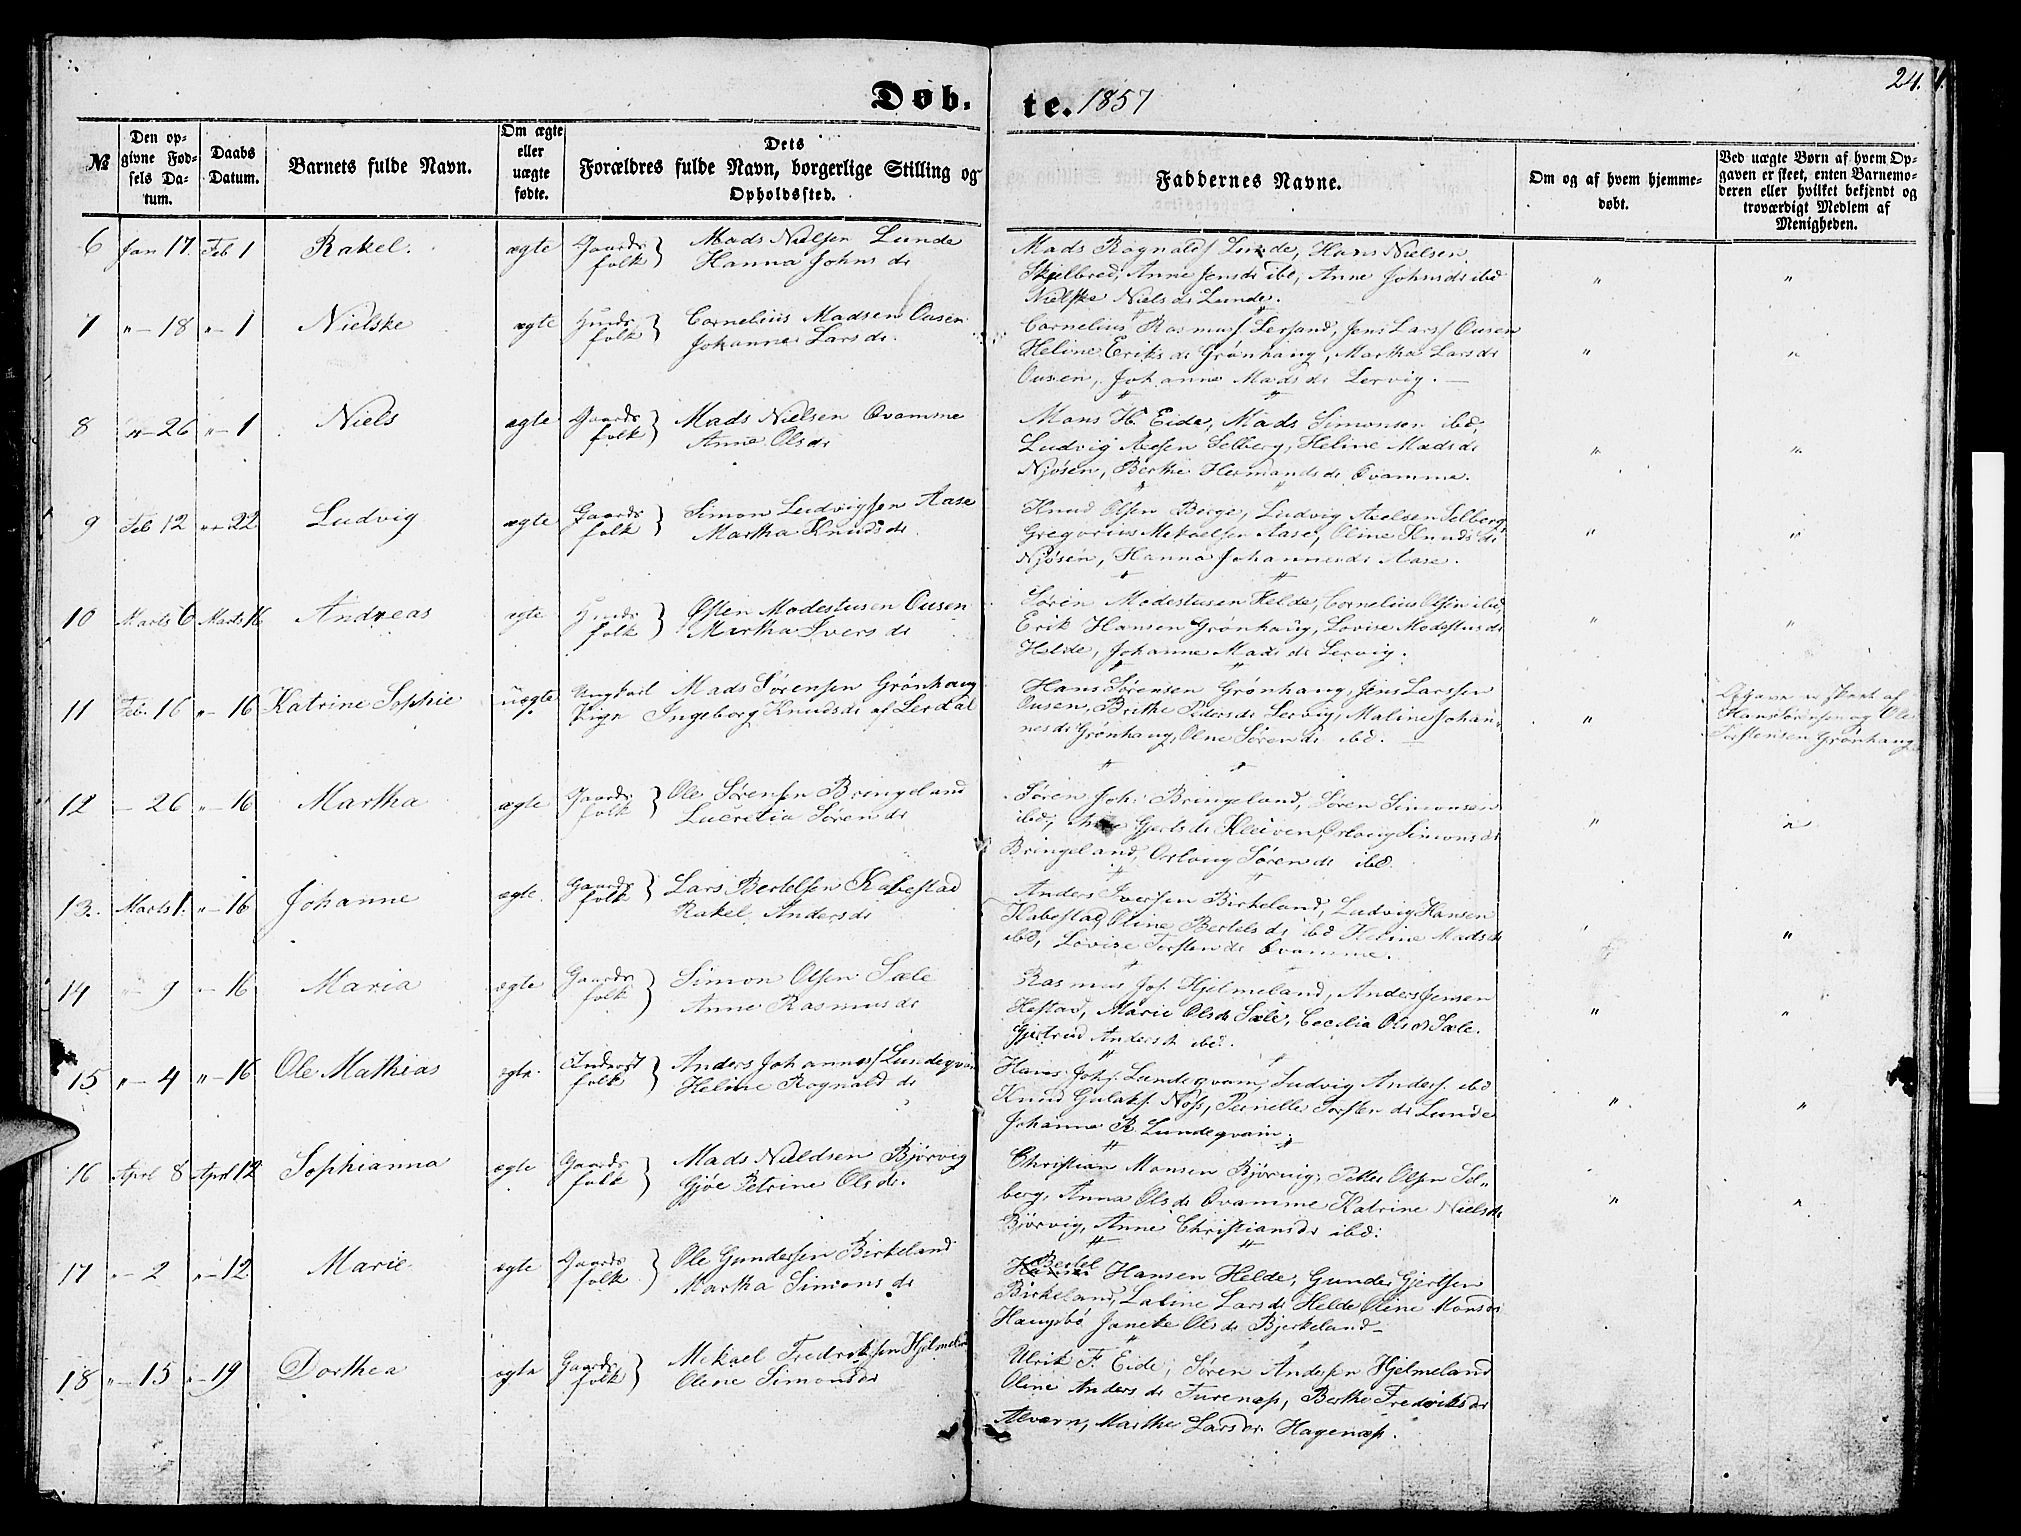 Døb-
te. 1857
24.
№
Den op-
givne Fød-
sels Da-
tum.
Daabs
Datum.
Barnets fulde Navn.
Om ægte
eller
uægte
fødte.
Dets
Forældres fulde Navn, borgerlige Stilling og
Opholdssted.
Faddernes Navne.
Om og af hvem hjemme-
døbt.
Ved uægte Børn af hvem Op-
gaven er skeet, enten Barnemo-
deren eller hvilket bekjendt og
troværdigt Medlem af
Menigheden.
6 Jan 17. Feb 1 Rakel. ægte Gaards Mads Nielsen Lunde
folk Hanna Johns dr
Mads Rognalds Lunde, Hans Nielsen
Skjelbred, Anne Jensdr ibd, Anne Johnsdr ibd " "
Nielske Niels dr Lunde.
7 " 18 " 1 Nielske ægte Huuds Cornelius Madsen Ousen
folk Johanne Lars dr.
Cornelius Rasmus Lersand, Jens Lars Ousen
Heline Eriks dr Grønhaug, Martha Lars dr " "
Ousen, Johanne Mads dr Lervig.
8 " 26 " 1 Niels ægte Gaards Mads Nielsen Qvamme
folk Anne Ols dr
Mons H. Eide, Mads Simonsen ibd,
Ludvig Axelsen Solberg, Heline Mads dr " "
Njøsen, Berthe Hermands dr Qvamme.
9 Feb 12 " 22 Ludvig ægte Gaards Simon Ludvigsen Aase
folk Martha Knuds dr
Knud Olsen Berge, Ludvig Axelsen Solberg
Gregorius Mekaelsen Aase, Oline Knuds dr " "
Njøsen, Hanna Johannesdr Aase.
10 Marts 6 Marts 16 Andreas ægte Huuds Østen Modestusen Ousen
folk Martha Ivers dr
Søren Modestusen Helde, Cornelius Olsen ibd,
Erik Hansen Grønhaug, Lovise Modestus dr " "
Helde, Johanne Mads dr Lervig.
11 Feb. 16 " 16 Katrine Sophie uægte Ungkarl Mads Sørensen Grønhaug
Pige Ingeborg Knudsdr af Lerdal
Hans Sørensen Grønhaug, Jens Larssen
Ousen, Brithe Peders dr Lervig, Maline Johan-
nes dr Grønhaug, Oline Sørens dr ibd. "
Opgaven er skeet af
Hans Sørensen og Ole
Torstensen Grønhaug
12 " 26 " 16 Martha ægte Gaards Ole Sørensen Bringeland
folk Lucretia Sørens dr
Søren Joh. Bringeland, Søren Simonsen
ibd, Gjerts dr Kleiven, Oslaug Simons dr " "
Bringeland, Oslaug Sørens dr ibd.
13. Marts 1. " 16 Johanne ægte. Gaards Lars Bertelsen Habestad
folk Rakel Anders dr
Anders Iversen Birkeland, Ludvig Hansen
Habestad, Oline Bertels dr ibd Heline Mads dr " "
ibd, Lovise Torstens dr Qvamme.
14 " 9 " 16 Maria ægte Gaards Simon Olsen Sæle
folk Anne Rasmus dr
Rasmus Joh. Hjelmeland, Anders Jensen
Hestad, Marie Olsdr Sæle, Cecilia Olsdr Sæle. " "
Gjertrud Andersdr ibd.
15 " 4 " 16 Ole Mathias ægte. Inderst Anders Johanness Lundeqvam
folk Heline Rognalds dr
Hans Johs. Lundeqvam, Ludvig Anders. ibd
Knud Gulaks. Nøss, Pernelle Torstens dr Lunde " "
Johanna R. Lundeqvam.
16 April 8 April 12 Sophianna ægte Gaards Mads Nieldsen Bjørvig
folk Gjøe Petrine Ols dr.
Christian Monsen Bjørvig, Petter Olsen Sol-
berg, Anna Ols dr Qvamme Katrine Niels dr " "
Bjørvig, Anne Christiansdr ibd.
17 " 2 " 12 Marie ægte Gaards Ole Gundersen Birkeland
folk Martha Simons dr
Bertel
Hansen Helde, Gunder Gjertsen
Birkeland, Laline Lars dr Helde Oline Mons dr
Haugsbø Janeke Ols dr Bjerkeland
18 " 15 " 19 Dorthea ægte Gaards Mekael Fredriksen Hjelmeland
folk Olene Simonsdr
Ulrik F. Eide, Søren Andersen Hjelmeland
Oline Anders dr Furenæs, Berthe Fredriks dr
Alværn, Marthe Lars dr Hagenæs.